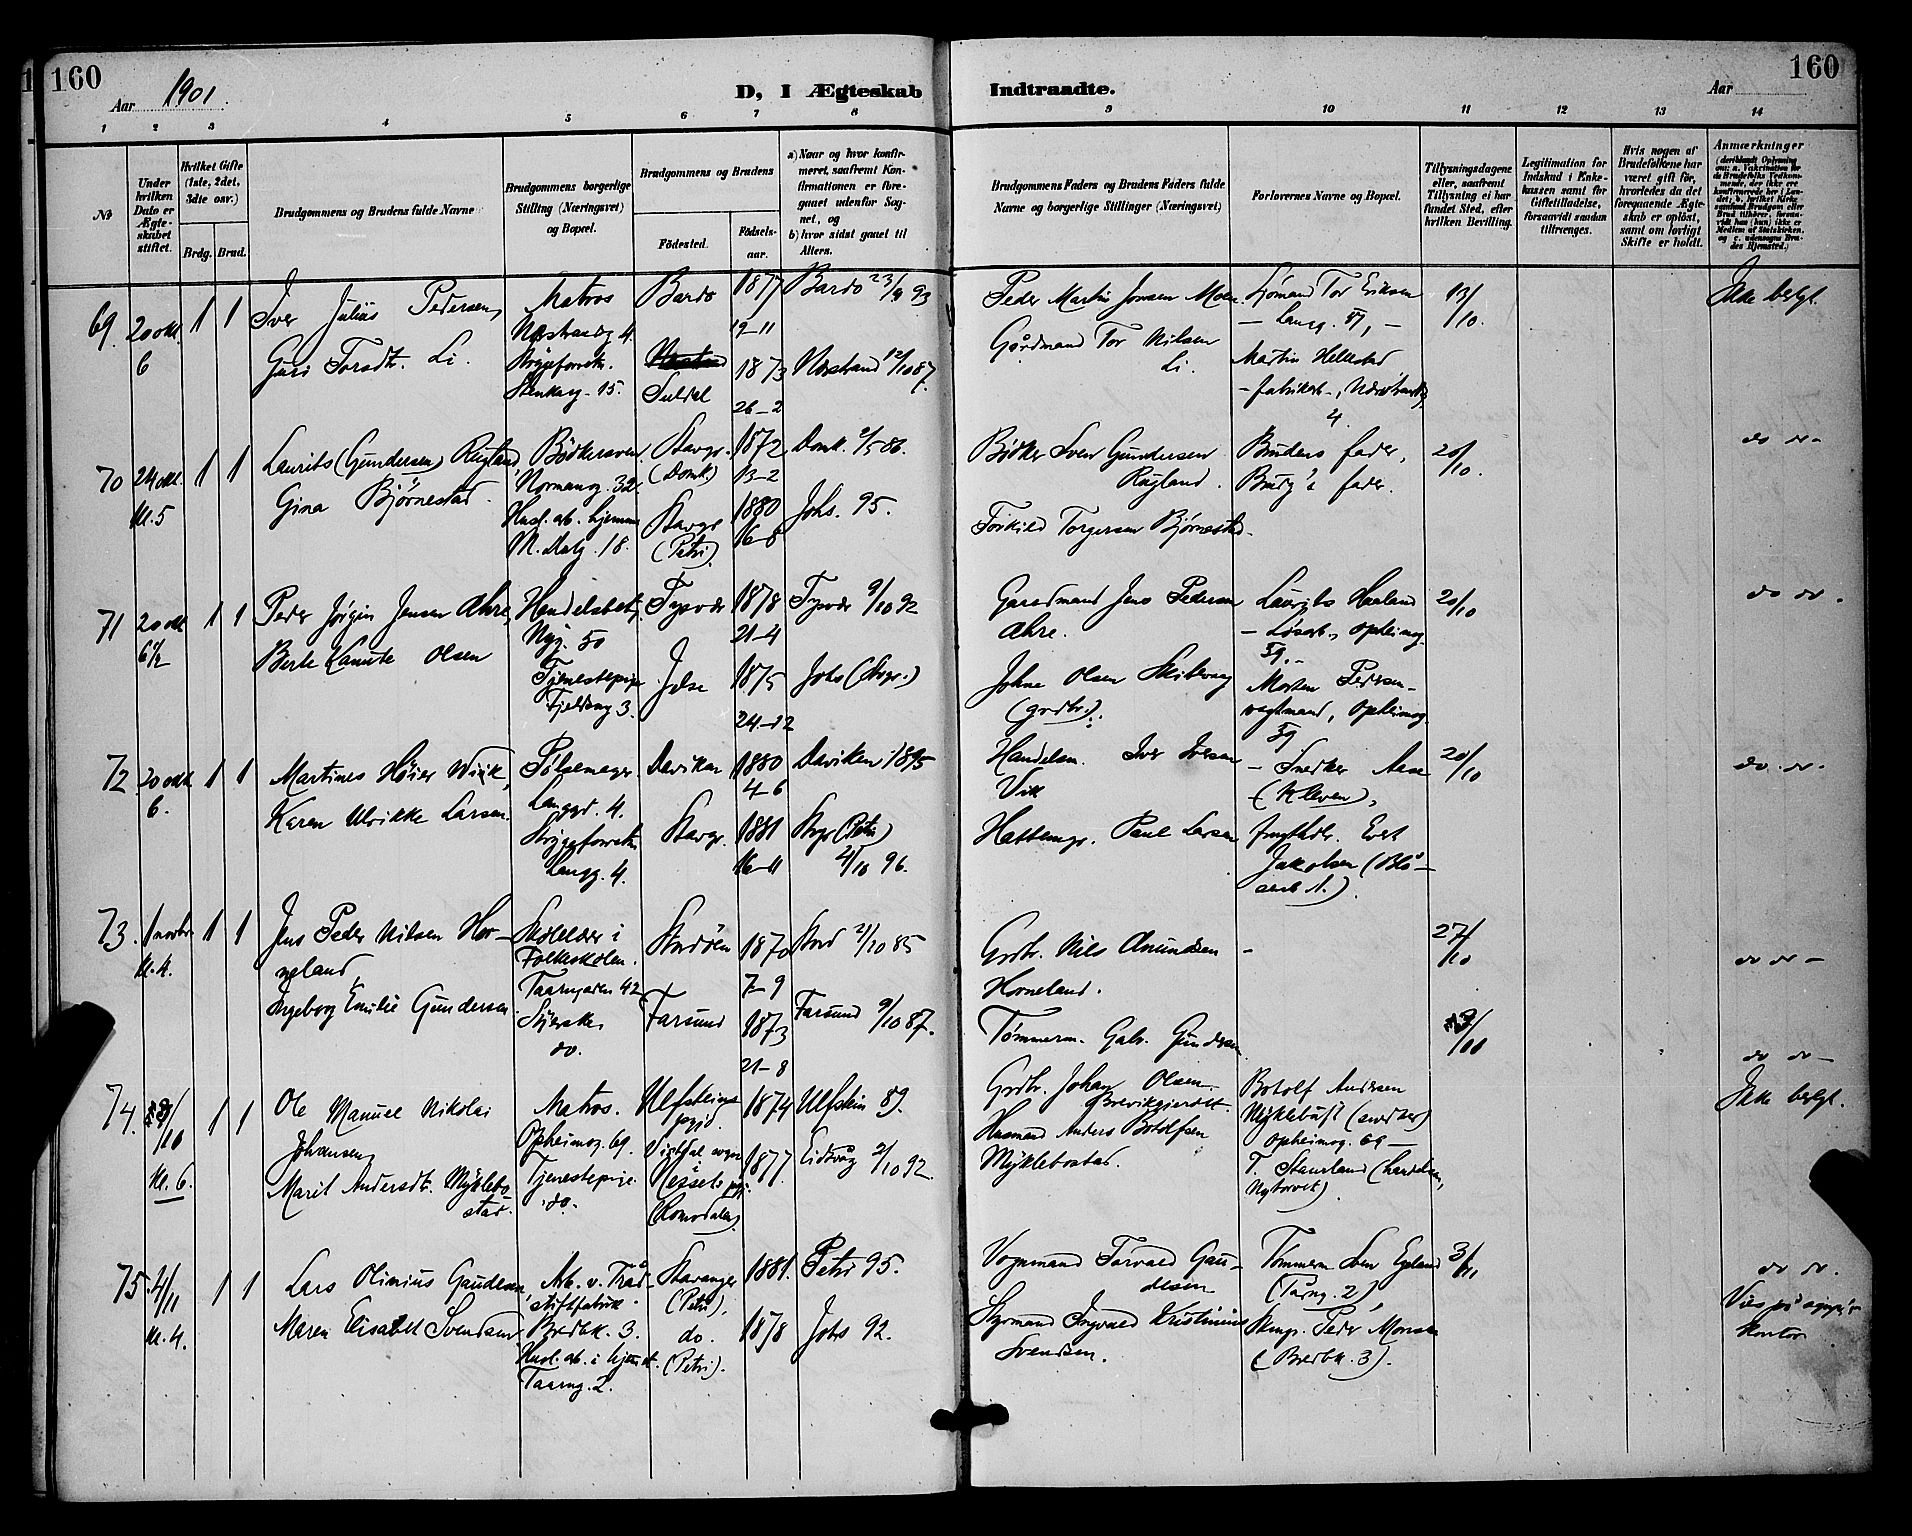 160
Aar 1901.
D, I Ægteskab
Indtraadte.
Aar
160
1 2 3 4 5 6 7 8 9 10 11 12 13 14
No
Under hvilken Dato er Ægteskabet stiftet.
Hvilket Gifte (1ste, 2det, 3dte osv.)
Brdg. Brud.
Brudgommens og Brudens fulde Navne
Brudgommens borgerlige Stilling (Næringsvei) og Bopæl.
Brudgommens og Brudens
Födested.
Födselsaar.
a) Naar og hvor konfirmeret, saafremt Konfirmationen er foregaaet udenfor Sognet, og
b) hvor sidst gaaet til Alters.
Brudgommens Faders og Brudens Faders fulde Navne og borgerlige Stillinger (Næringsvei)
Forlovernes Navne og Bopæl.
Tillysningsdagene eller, saafremt Tillysning ei har fundet Sted, efter hvilken Bevilling.
Legitimation for Indskud i Enkekassen samt for Giftetilladelse, forsaavidt saadan tiltrænges.
Hvis nogen af Brudefolkene har været gift før, hvorledes da det foregaaende Ægteskab er opløst, samt om lovligt Skifte er holdt.
Anmærkninger
69. 20 okt. 6 1 1
Iver Julius Pedersen,
Guri Torsdt. Li.
Matros
Nærstrandg 4.
Strygeforretn.
Stenkarg. 15.
Bardo
Suldal
1877
19-11
1873
26-2
Bardo 23/9 93
Nerstrand 12/10 87.
Peder Martin Jonsen Moen
Gårdmand Tor Nilsen
Li.
Sjømand Tor Eriksen
- Langg. 51, -
Martin Hellestad
- fabrikarb -, Nærstrandg
4.
13/10.
Ikke beslgt.
70 24 okt. kl. 5 1 1
Laurits (Gundersen) Rugland,
Gina Bjørnestad.
Bödkersvend
Normansg. 32.
Husl. arb. hjemme
M. Dalg. 18.
Stavgr.
(Domk.)
Stavgr
(Petri).
1872
13-2
1880
16-8
Domk. 2/5 86.
Johs. 95.
Bødker Sven Gundersen
Rugland.
Torkild Torgersen Bjørnestad.
Brudens fader,
Brudg's fader.
20/10.
do do -
71 20 okt 6 1/2 1 1
Peder Jörgin Jensen Ahre,
Berte Kanute Olsen
Handelsbetj.
Nyg. 50
Tjenestepige
Fjeldsng 3.
Tysvær
Jelse
1878
21-4
1875
24-12
Tysvær 9/10 92
Johs (Stvgr.)
Gaardmand Jens Pedersen
Ahre.
Johne Olsen Skibevaag
(grdbr.).
Laurits Haaland
- Løsarb., Opheimsg.
59. -
Morten Pedersen -
vegtmand, Opheimsg.
59
20/10
do do.
72. 20 okt 6. 1 1
Martines Höier Wiik,
Karen Ulrikke Larsen.
Pölsemager
Langgd. 4.
Strygeforretn
Langg. 4.
Daviken
Stavgr.
1880
4-6
1881
16-11
Daviken 1895
Stvgr (Petri)
4/10 96.
Handelsm. Iver Iversen
Vik
Hattemgr. Paul Larsen
- Snedker Aase
(Kleven),
Evert
Jakobsen (Blå-
20/10
do. do.
73. 1 novbr. kl. 4. 1 1
Jens Peder Nilsen Hor-
neland,
Ingeborg Emilie Gundersen
Skolelærer i
Folkeskolen.
Taarngaden 42
Syerske
do.
Stordöen
Farsund
1870
7-9
1873
21-8
Stord 2/10 85
Farsund 9/10 87.
Grdbr. Nils Amundsen
Horneland.
Tømmerm. Gabr. Gundersen
-
27/10
do do -
74. 29/10 kl. 6. 1 1
Ole Manuel Nikolai
Johansen,
Marit Andersdt. Myklebo-
stad.
Matros.
Opheimsg. 69.
Tjenestepige.
do.
Ulfstens
prgjd.
Vistdal sogn
Nesset prgj.
(Romsdalen)
1874
1877
Ulfstein 89.
Eidsvåg 2/10 92.
Grdbr. Johan Olsen
Breivikgierdet.
Husmand Anders Botolfsen
Myklebostad.
Botolf Andersen
Myklebust (snedker)
Opheimsg. 69 -
T. Staurland (handelsm,
Nytorvet).
do do -
Ikke beslgt.
75. 4/11 kl. 4. 1 1
Lars Olinius Gaudesen,
Maren Elisabet Svendsen
Arb. v. Tråd-
stiftfabrik.
Bredbk. 3.
Husl. arb. i hjemmet.
Taarng. 2.
Stavanger
(Petri).
do.
(Petri).
1881.
1878
Petri 95.
Johs 92.
Vognmand Torvald Gau-
desen
Styrmand Ingvald Kristinius
Svendsen.
Tömmerm Sven Egeland
(Tarng. 2)
Skmgr. Peder Monsen
(Bredbk. 3).
3/11
do do.
Vies på sognepr's
kontor